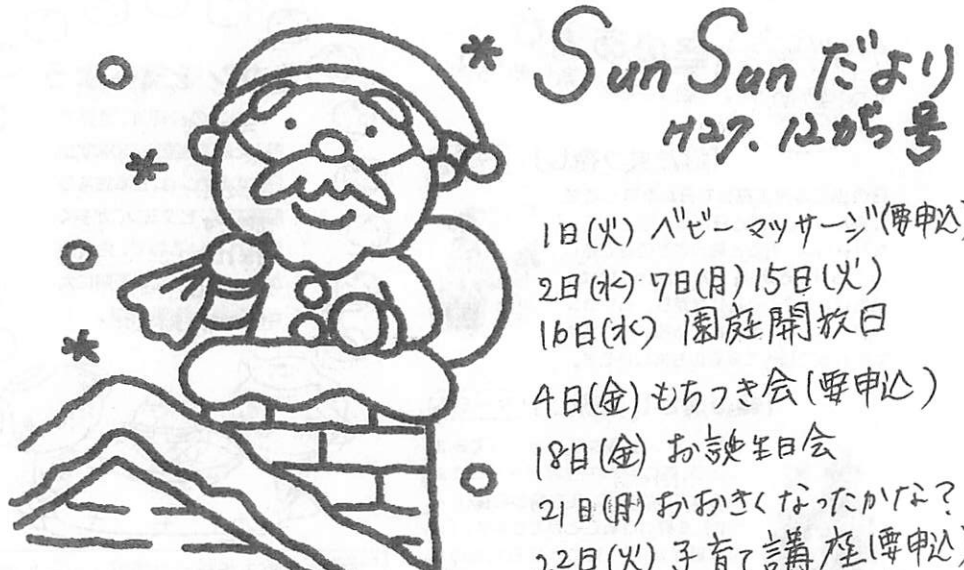 Sun Sun だより
H27. 12がつ号
1日(火) ベビーマッサージ(要申込)
2日(水) 7日(月) 15日(火)
16日(水) 園庭開放日
4日(金) もちつき会(要申込)
18日(金) お誕生日会
21日(月) おおきくなったかな?
22日(火) 子育て講座(要申込)